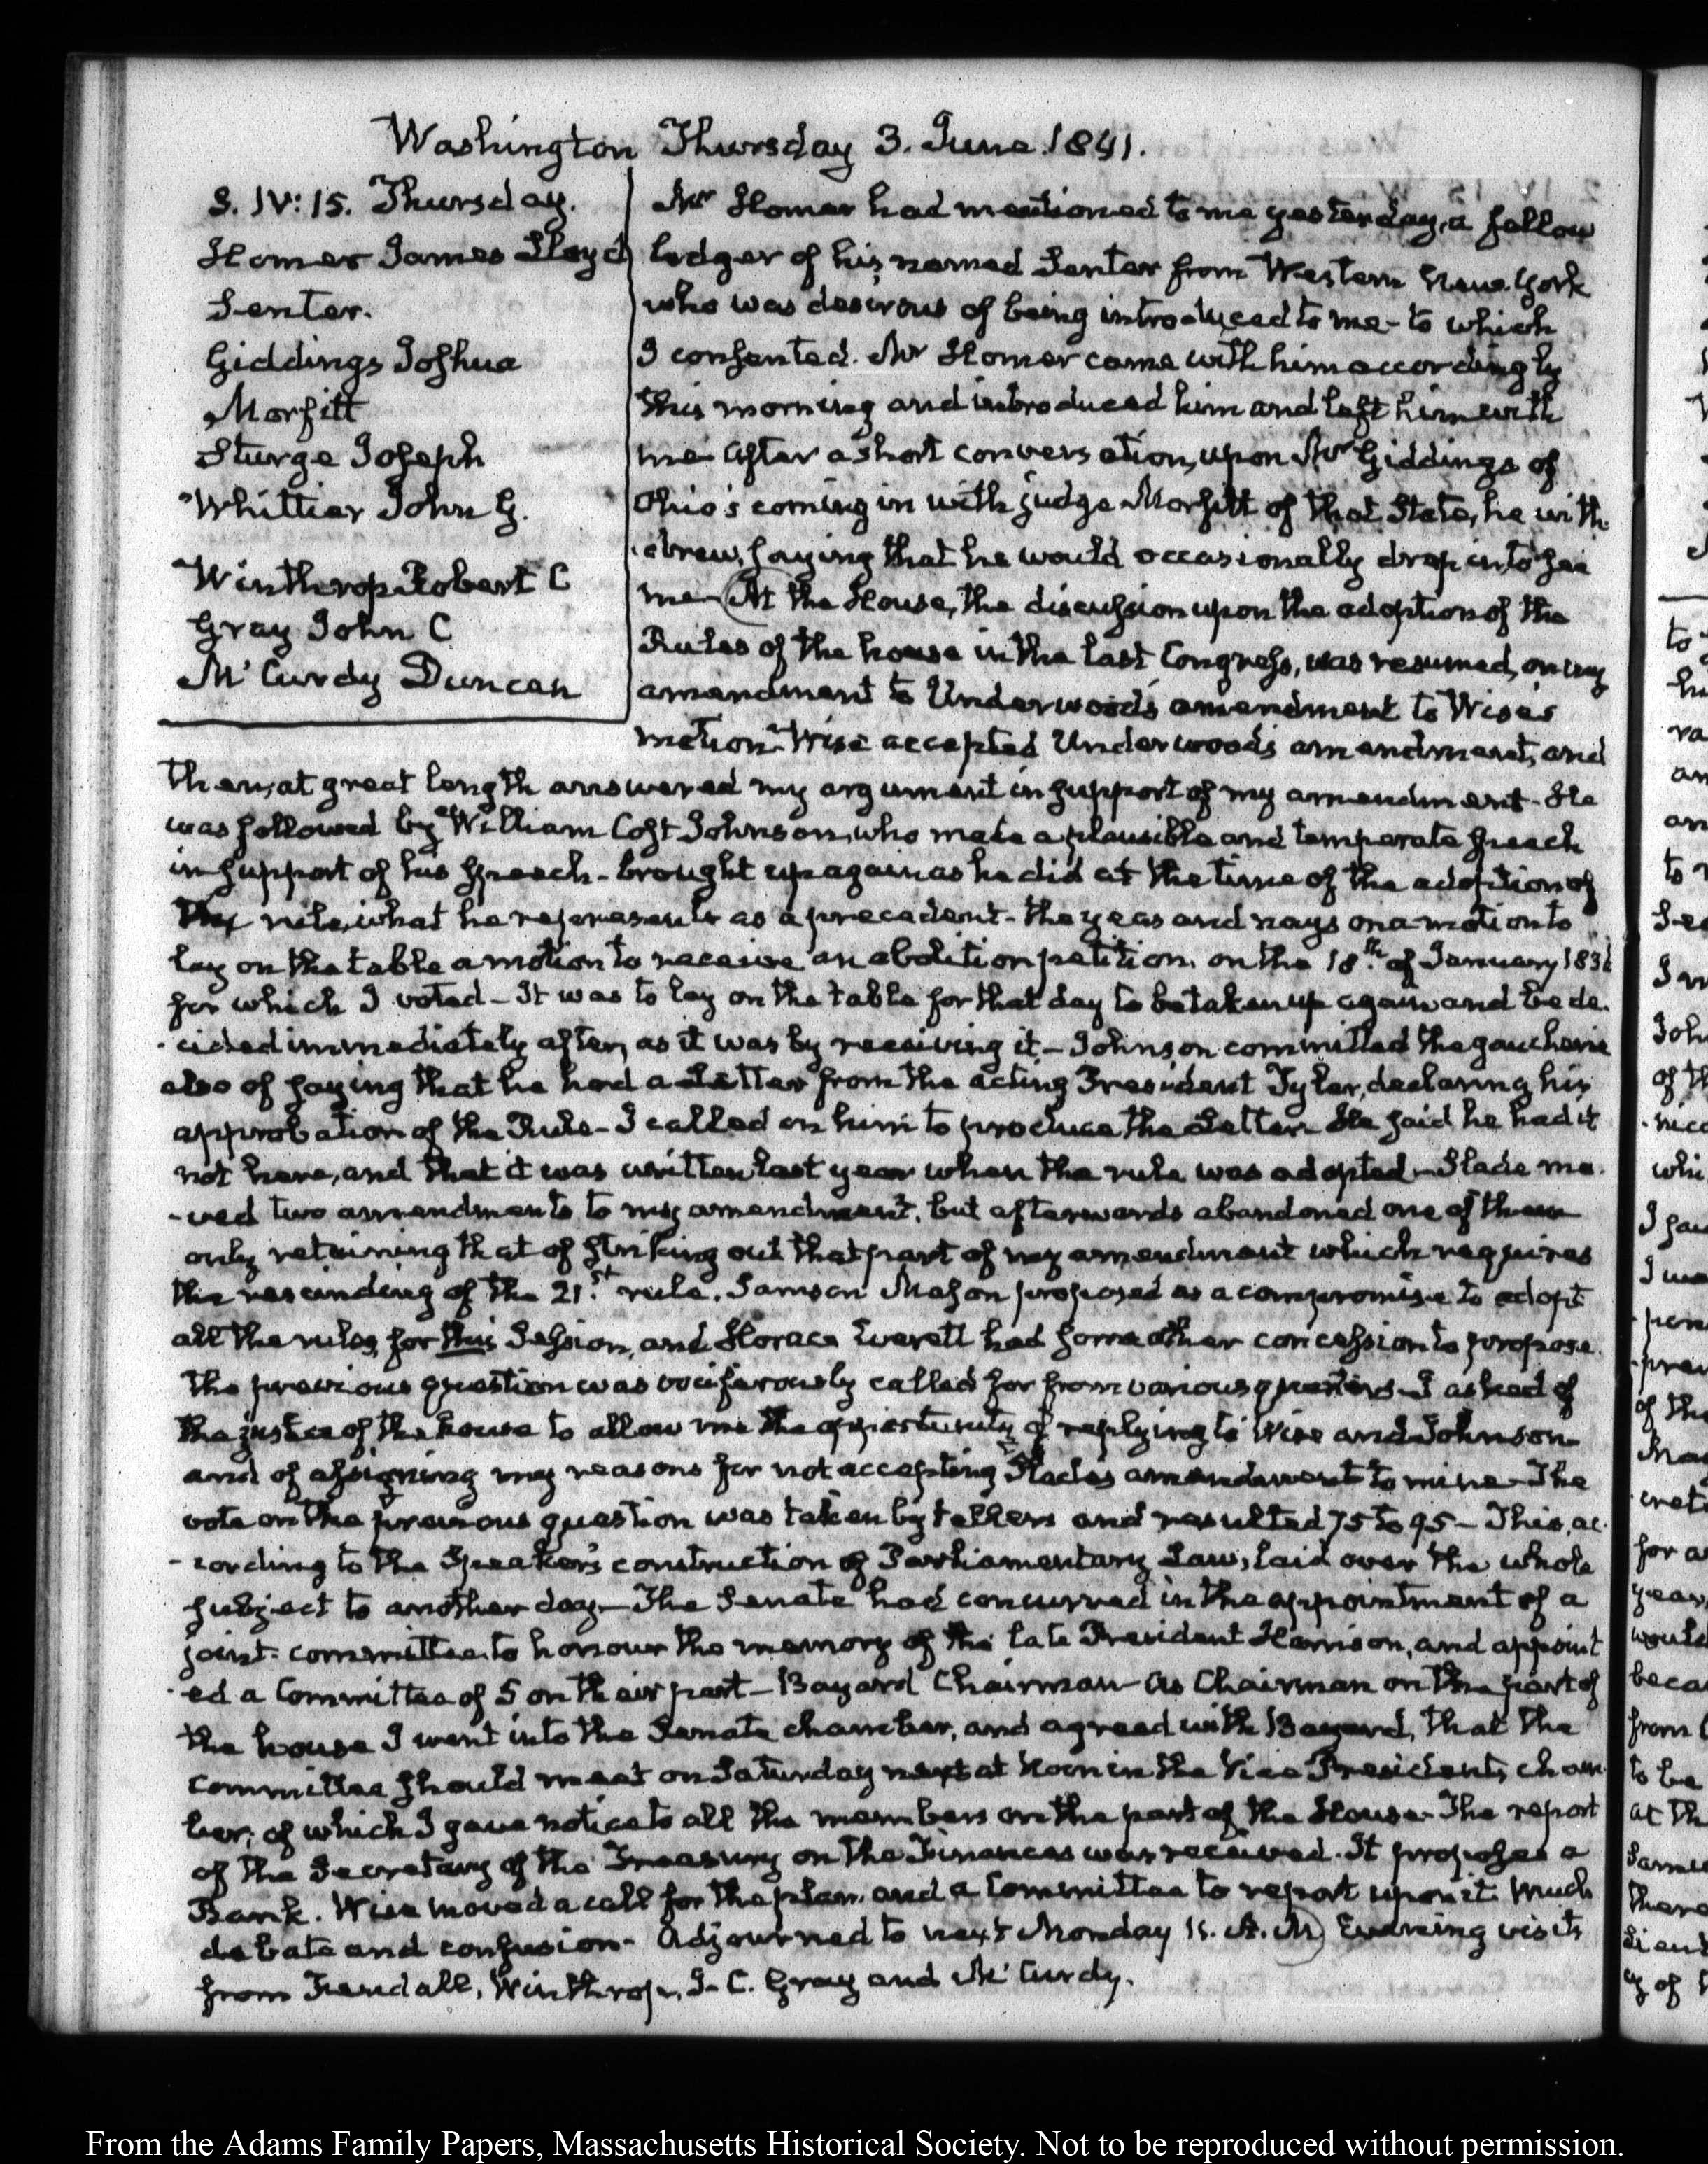 Washington Thursday 3. June. 1841.
3. IV: 15. Thursday.
Homer James Lloyd
Senter.
Giddings Joshua
Morfitt
Sturge Joseph
Whittier John G.
Winthrop Robert C
Gray John C
McCurdy Duncan
Mr Homer had mentioned to me yesterday, a fellow
lodger of his, named Senter from Western New York
who was desirous of being introduced to me- to which
I consented. Mr Homer came with him accordingly
this morning and introduced him and left him with
me. After a short conversation, upon Mr Giddings of
Ohio's coming in with judge Morfitt of that State, he with-
-drew, saying that he would occasionally drop in, to see
me- At the House, the discussion upon the adoption of the
Rules of the house in the last Congress, was resumed, on my
amendment to Underwood's amendment to Wise's
motion- Wise accepted Underwood's amendment, and
then, at great length answered my argument in support of my amendment- He
was followed by William Cost Johnson, who made a plausible and temperate speech
in support of his speech- brought up again as he did at the time of the adoption of
the rule, what he represents as a precedent- the yeas and nays on a motion to
lay on the table a motion to receive an abolition petition, on the 18th of January 1836
for which I voted- It was to lay on the table for that day to be taken up again and be de-
-cided immediately after, as it was by receiving it- Johnson committed the gaucherie
also of saying that he had a Letter from the acting President Tyler, declaring his
approbation of the Rule- I called on him to produce the Letter- He said he had it
not here, and that it was written last year when the rule was adopted- Slade mo-
-ved two amendments to my amendment, but afterwards abandoned one of them
only retaining that of striking out that part of my amendment which requires
the rescinding of the 21st rule. Samson Mason proposed as a compromise to adopt
all the rules, for this Session, and Horace Everett had some other concession to propose.
The previous question was vociferously called for from various quarters- I asked of
the justice of the house to allow me the opportunity of replying to Wise and Johnson
and of assigning my reasons for not accepting Slade's amendment to mine- The
vote on the previous question was taken by tellers and resulted 75 to 95- This, ac-
-cording to the Speaker's construction of Parliamentary Law, laid over the whole
subject to another day- The Senate had concurred in the appointment of a
joint-committee to honour the memory of the late President Harrison, and appoint
-ed a Committee of 5 on their part- Bayard Chairman- As Chairman on the part of
the house I went into the Senate chamber, and agreed with Bayard, that the
committee should meet on Saturday next at Noon in the Vice President's cham-
ber, of which I gave notice to all the members on the part of the House- The report
of the Secretary of the Treasury on the Finances was received. It proposes a
Bank. Wise moved a call for the plan, and a Committee to report upon it. Much
debate and confusion- Adjourned to next Monday 11. A.M. Evening visits
from Fendall, Winthrop, J. C. Gray and McCurdy.
From the Adams Family Papers, Massachusetts Historical Society. Not to be reproduced without permission.